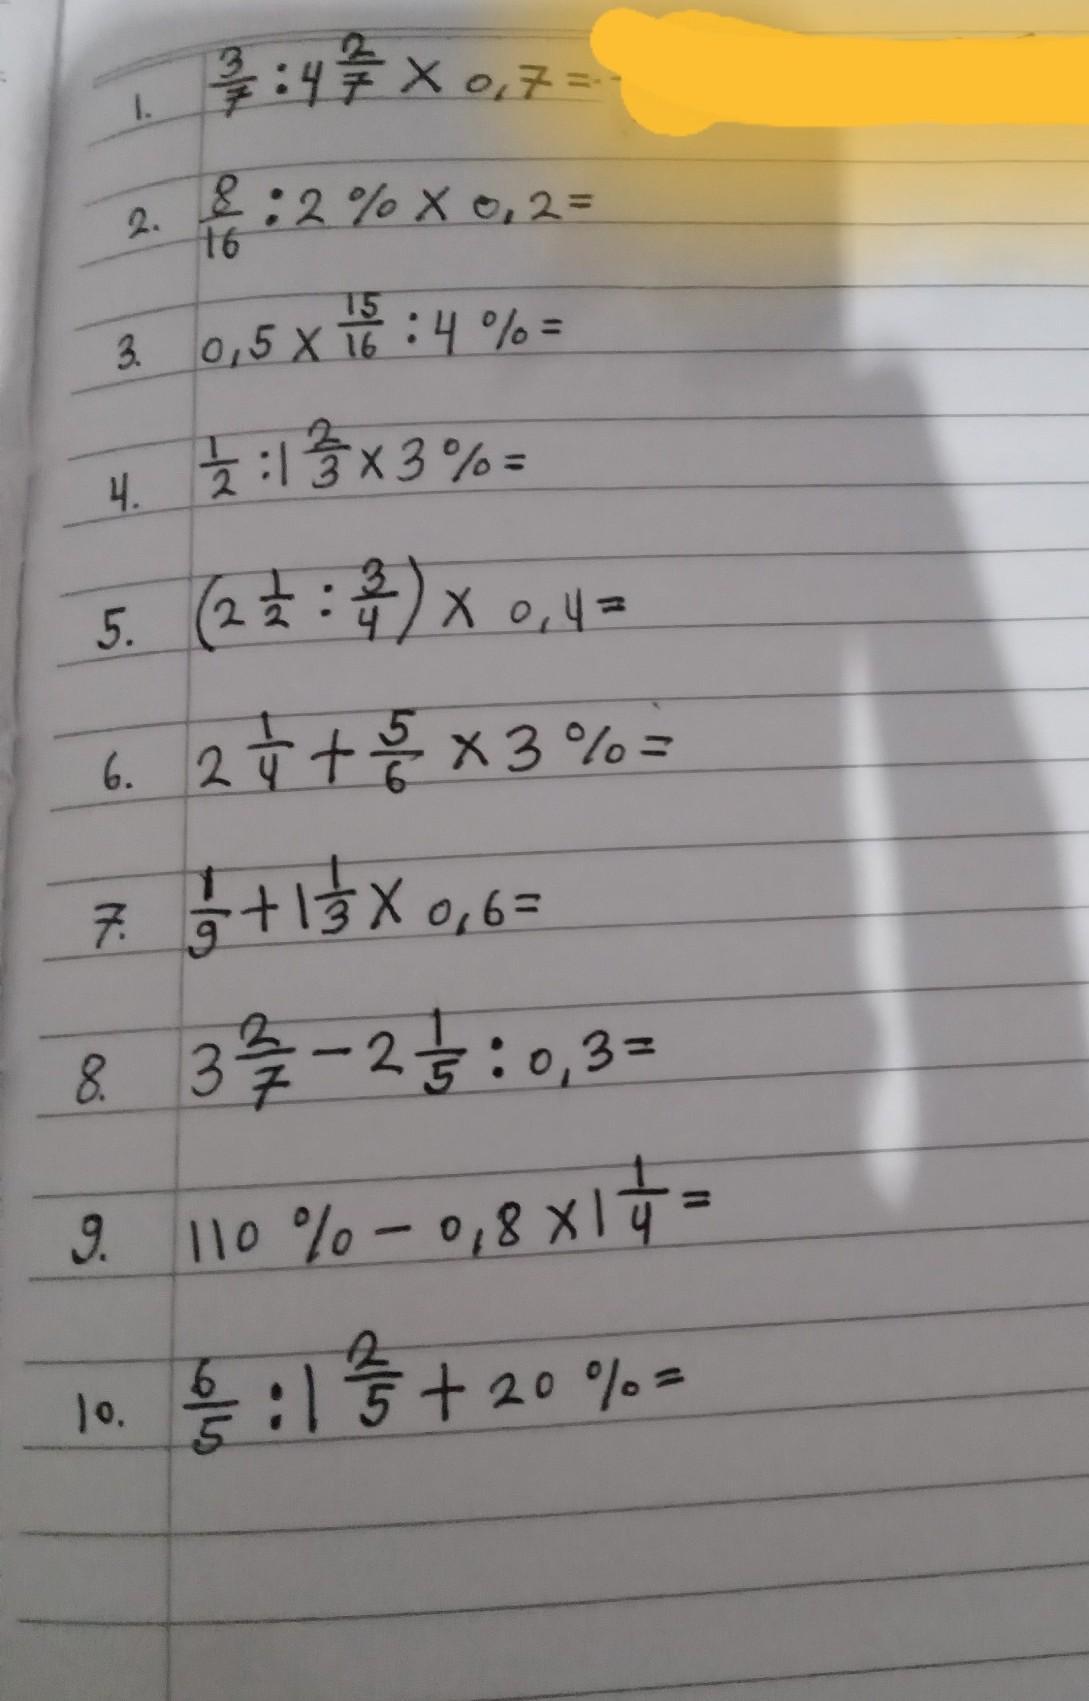 1. 3/7 : 4 2/7 × 0,7 =
2. 8/16 : 2 % × 0,2 =
3. 0,5 × 15/16 : 4 % =
4. 1/2 : 1 2/3 × 3 % =
5. (2 1/2 : 3/4) × 0,4 =
6. 2 1/4 + 5/6 × 3 % =
7. 1/9 + 1 1/3 × 0,6 =
8. 3 2/7 - 2 1/5 : 0,3 =
9. 110 % - 0,8 × 1 1/4 =
10. 6/5 : 1 2/5 + 20 % =